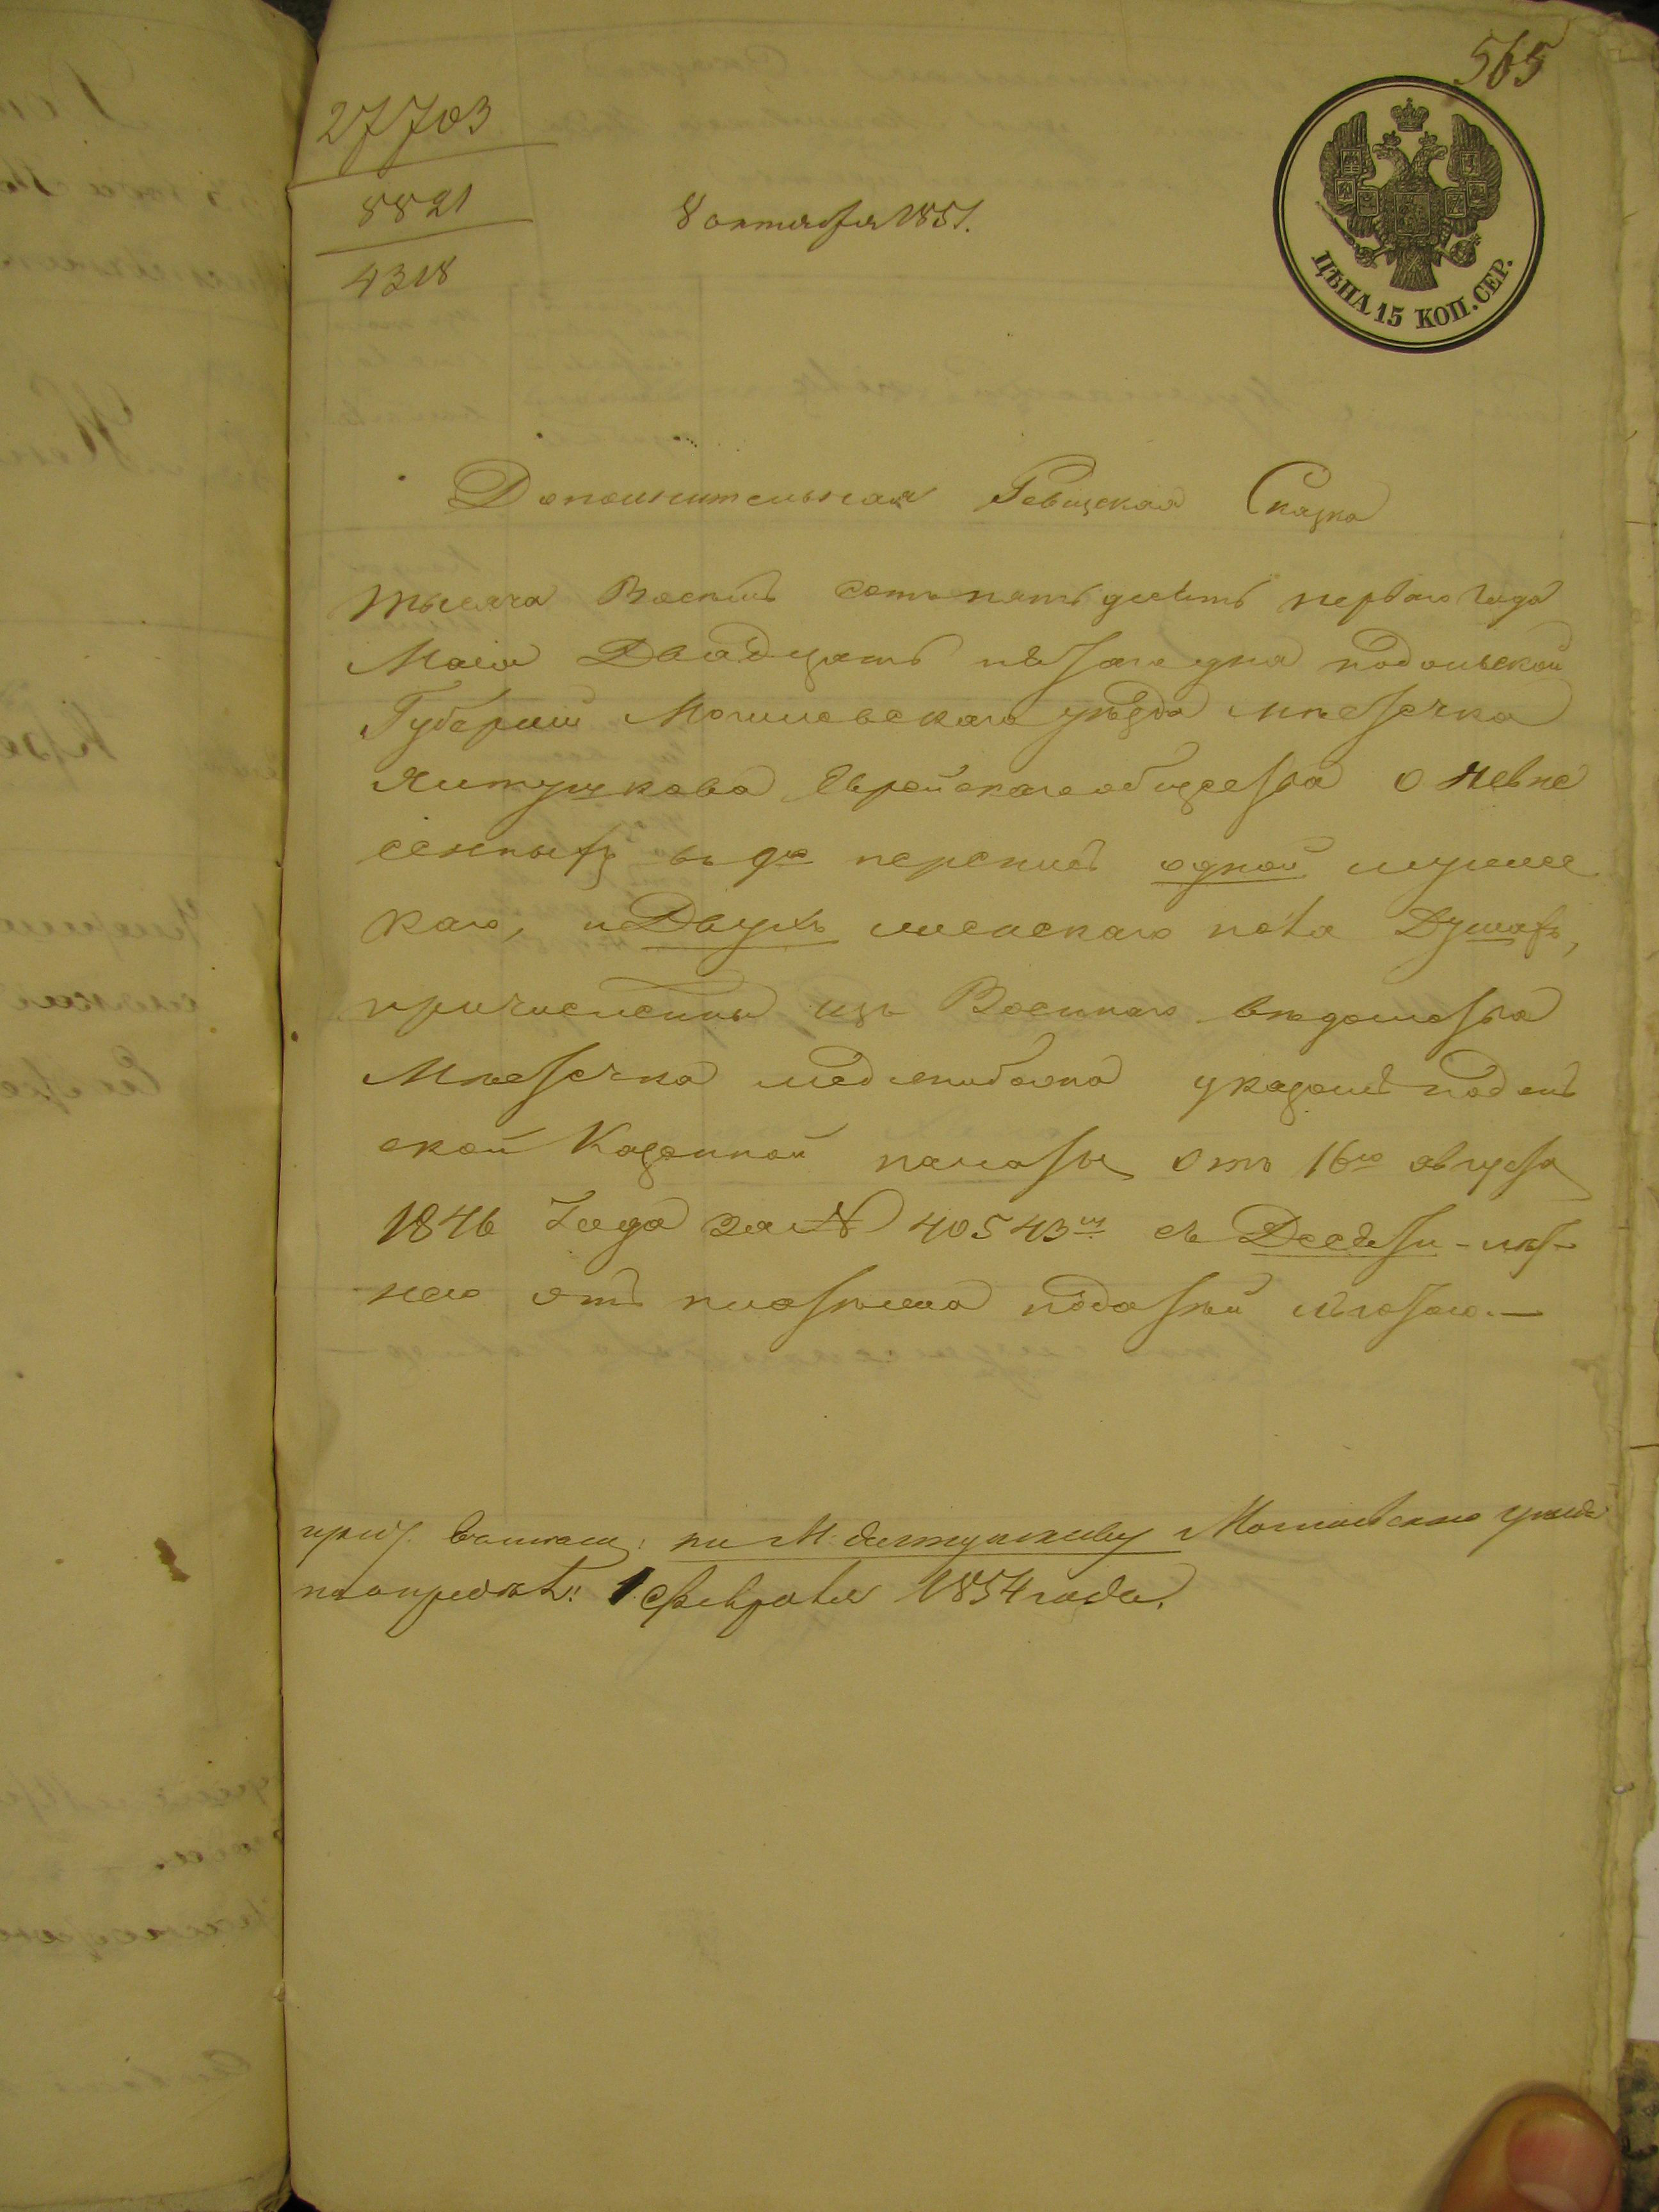 565
27703
8821
4318
8 октября 1851.
ЦѢНА 15 КОП. СЕР.
Дополнительная Ревизская Сказка
тысяча Восемь сотъ пятьдесятъ перваго года
Маія Двадцать пятаго дня подольской
Губерніи Могилевскаго уѣзда мѣстечка
Ялтушкова Еврейскаго общества о невне
сенныхъ въ 9ю перепись одной мужес
каго, и Двухъ женскаго пола Душахъ,
причисленны изъ Военнаго вѣдомства
Мѣстечка меджибожа указомъ подоль
ской Казенной палаты отъ 16го августа
1846 Года за № 40543мъ съ Десяти-лѣт-
нею отъ платежа податей льготою.—
по М. Ялтушкову Могилевскаго уѣзда
1 Февраля 1854 года.